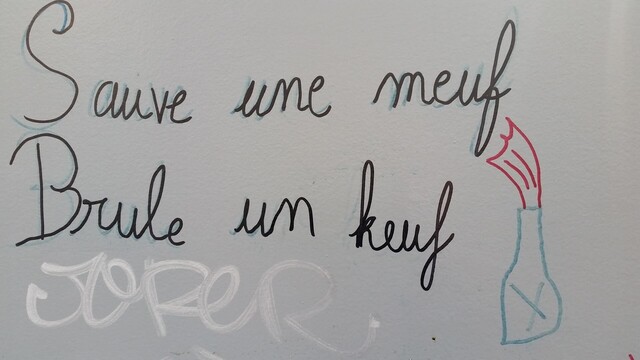 Sauve une meuf
Brule un keuf
JOKER